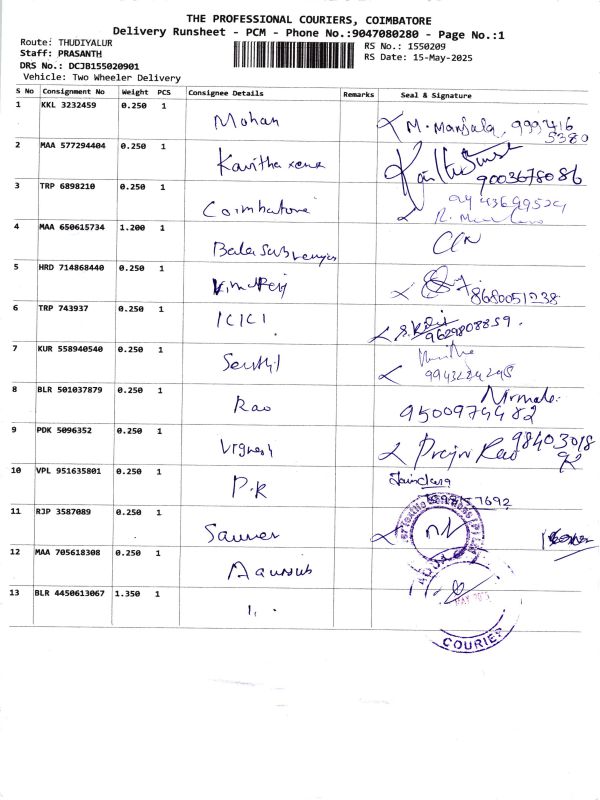 THE PROFESSIONAL COURIERS, COIMBATORE
Delivery Runsheet - PCM - Phone No.:9047080280 - Page No.:1
Route: THUDIYALUR
RS No.: 1550209
Staff: PRASANTH
RS Date: 15-May-2025
DRS No.: DCJB155020901
Vehicle: Two Wheeler Delivery
S No Consignment No Weight PCS Consignee Details Remarks Seal & Signature
1 KKL 3232459 0.250 1 Mohan M. Manjula
2 MAA 577294404 0.250 1 Kavitha 9003678086
3 TRP 6898210 0.250 1 Coimbatore
4 MAA 650615734 1.200 1
5 HRD 714868440 0.250 1 8680051238
6 TRP 743937 0.250 1 ICICI 9629808859.
7 KUR 558940540 0.250 1 Senthil
8 BLR 501037879 0.250 1 Rao Nirmala
9 PDK 5096352 0.250 1 Vignesh
10 VPL 951635801 0.250 1 P.R
11 RJP 3587089 0.250 1
12 MAA 705618308 0.250 1
13 BLR 4450613067 1.350 1
COURIER